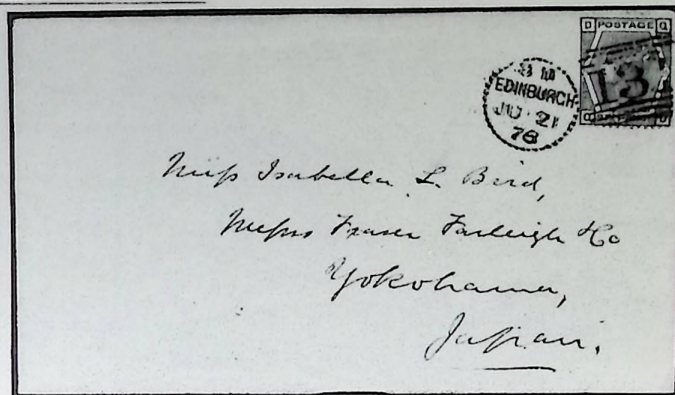 D POSTAGE Q
131
EDINBURGH
JU 21
78
Miss Isabella L. Bird,
Messrs Fraser Farleigh & Co
Yokohama,
Japan.